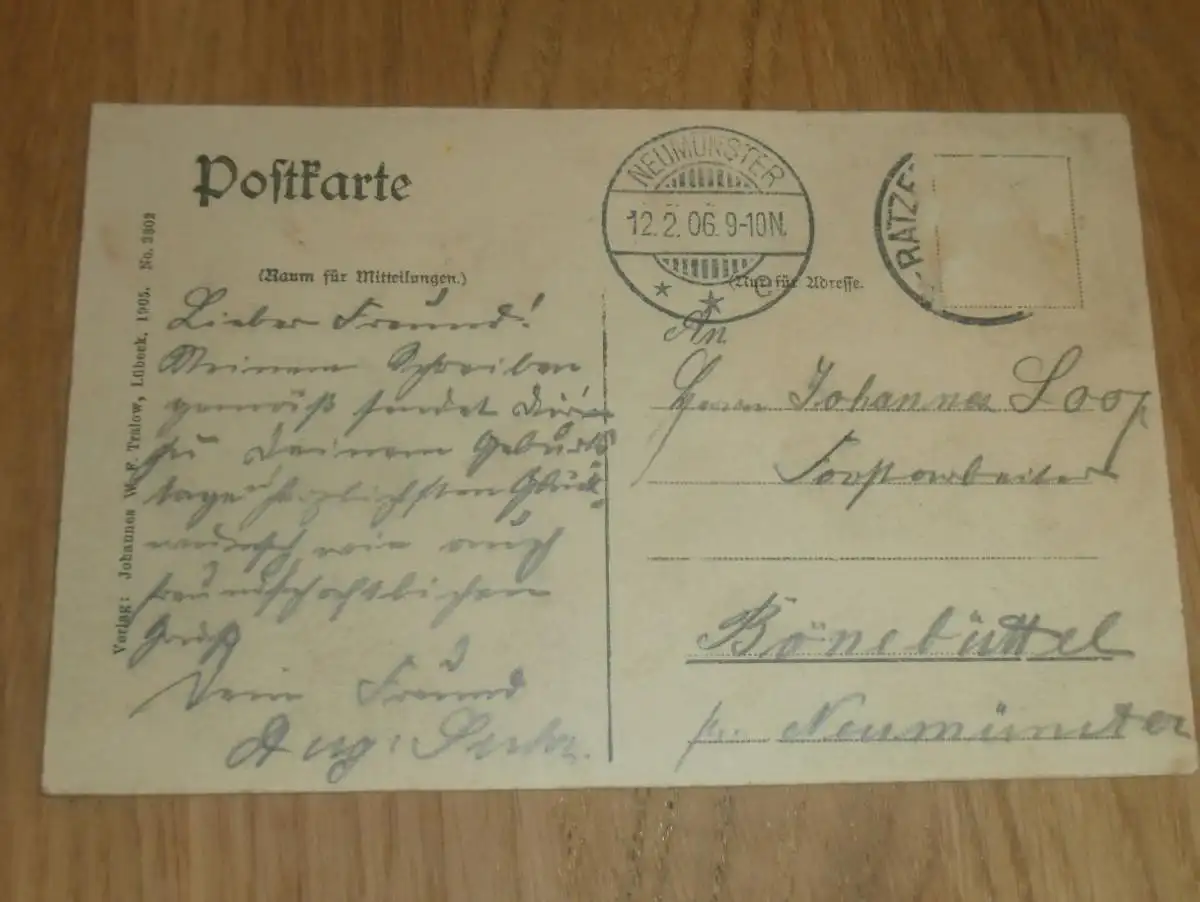 Postkarte
(Raum für Mitteilungen.)
Lieber Freund!
Meinem Schreiben
gemäß sendet Dir
zu Deinem Geburts
tage herzlichsten Glück
wunsch wie auch
freundschaftlichen
Gruß
Dein Freund
Aug.
Verlag: Johannes W. F. Tralow, Lübeck, 1905. No. 3802
NEUMÜNSTER
12.2.06. 9-10N.
* * C
RATZE
(Nur für Adresse.)
An
Herrn Johannes Loop
Forstarbeiter
Bönebüttel
pr. Neumünster